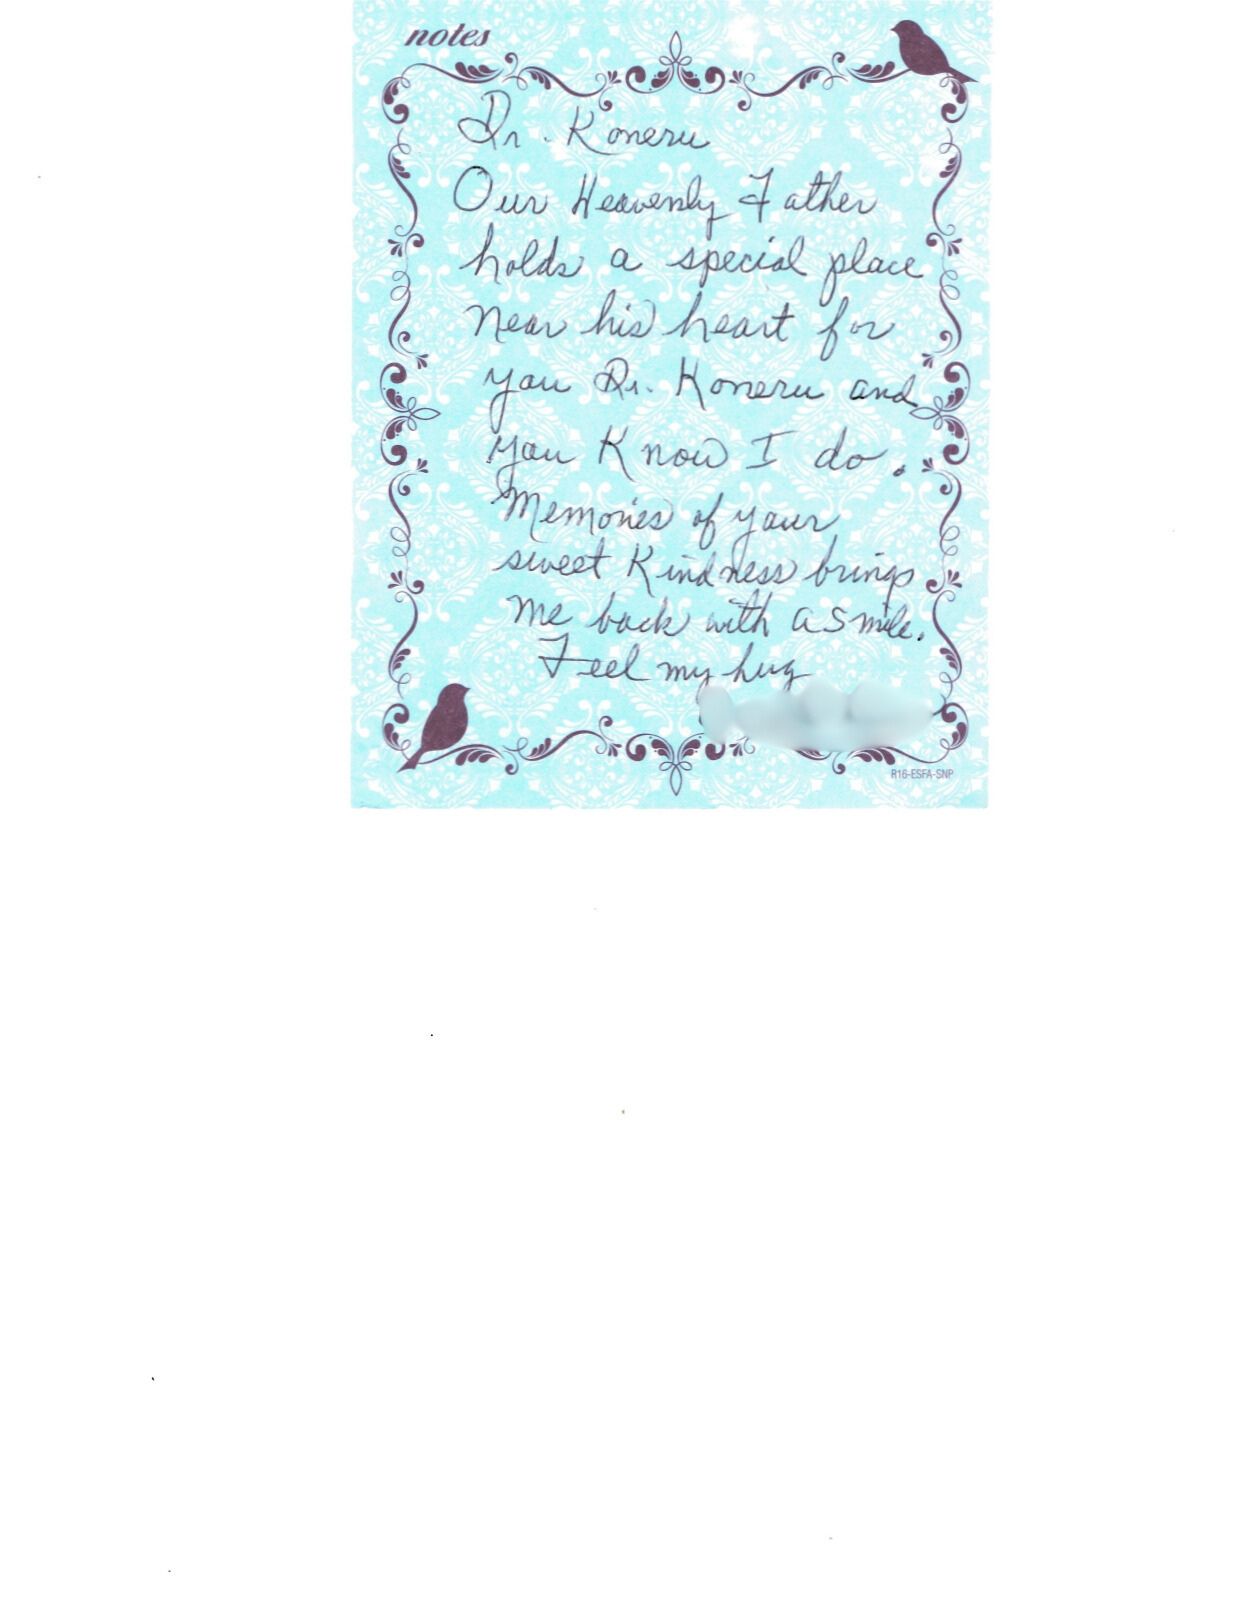 notes
Dr. Koneru
Our Heavenly Father
holds a special place
near his heart for
you Dr. Koneru and
you Know I do.
Memories of your
sweet Kindness brings
me back with a smile.
Feel my hug
R16-ESFA-SNP